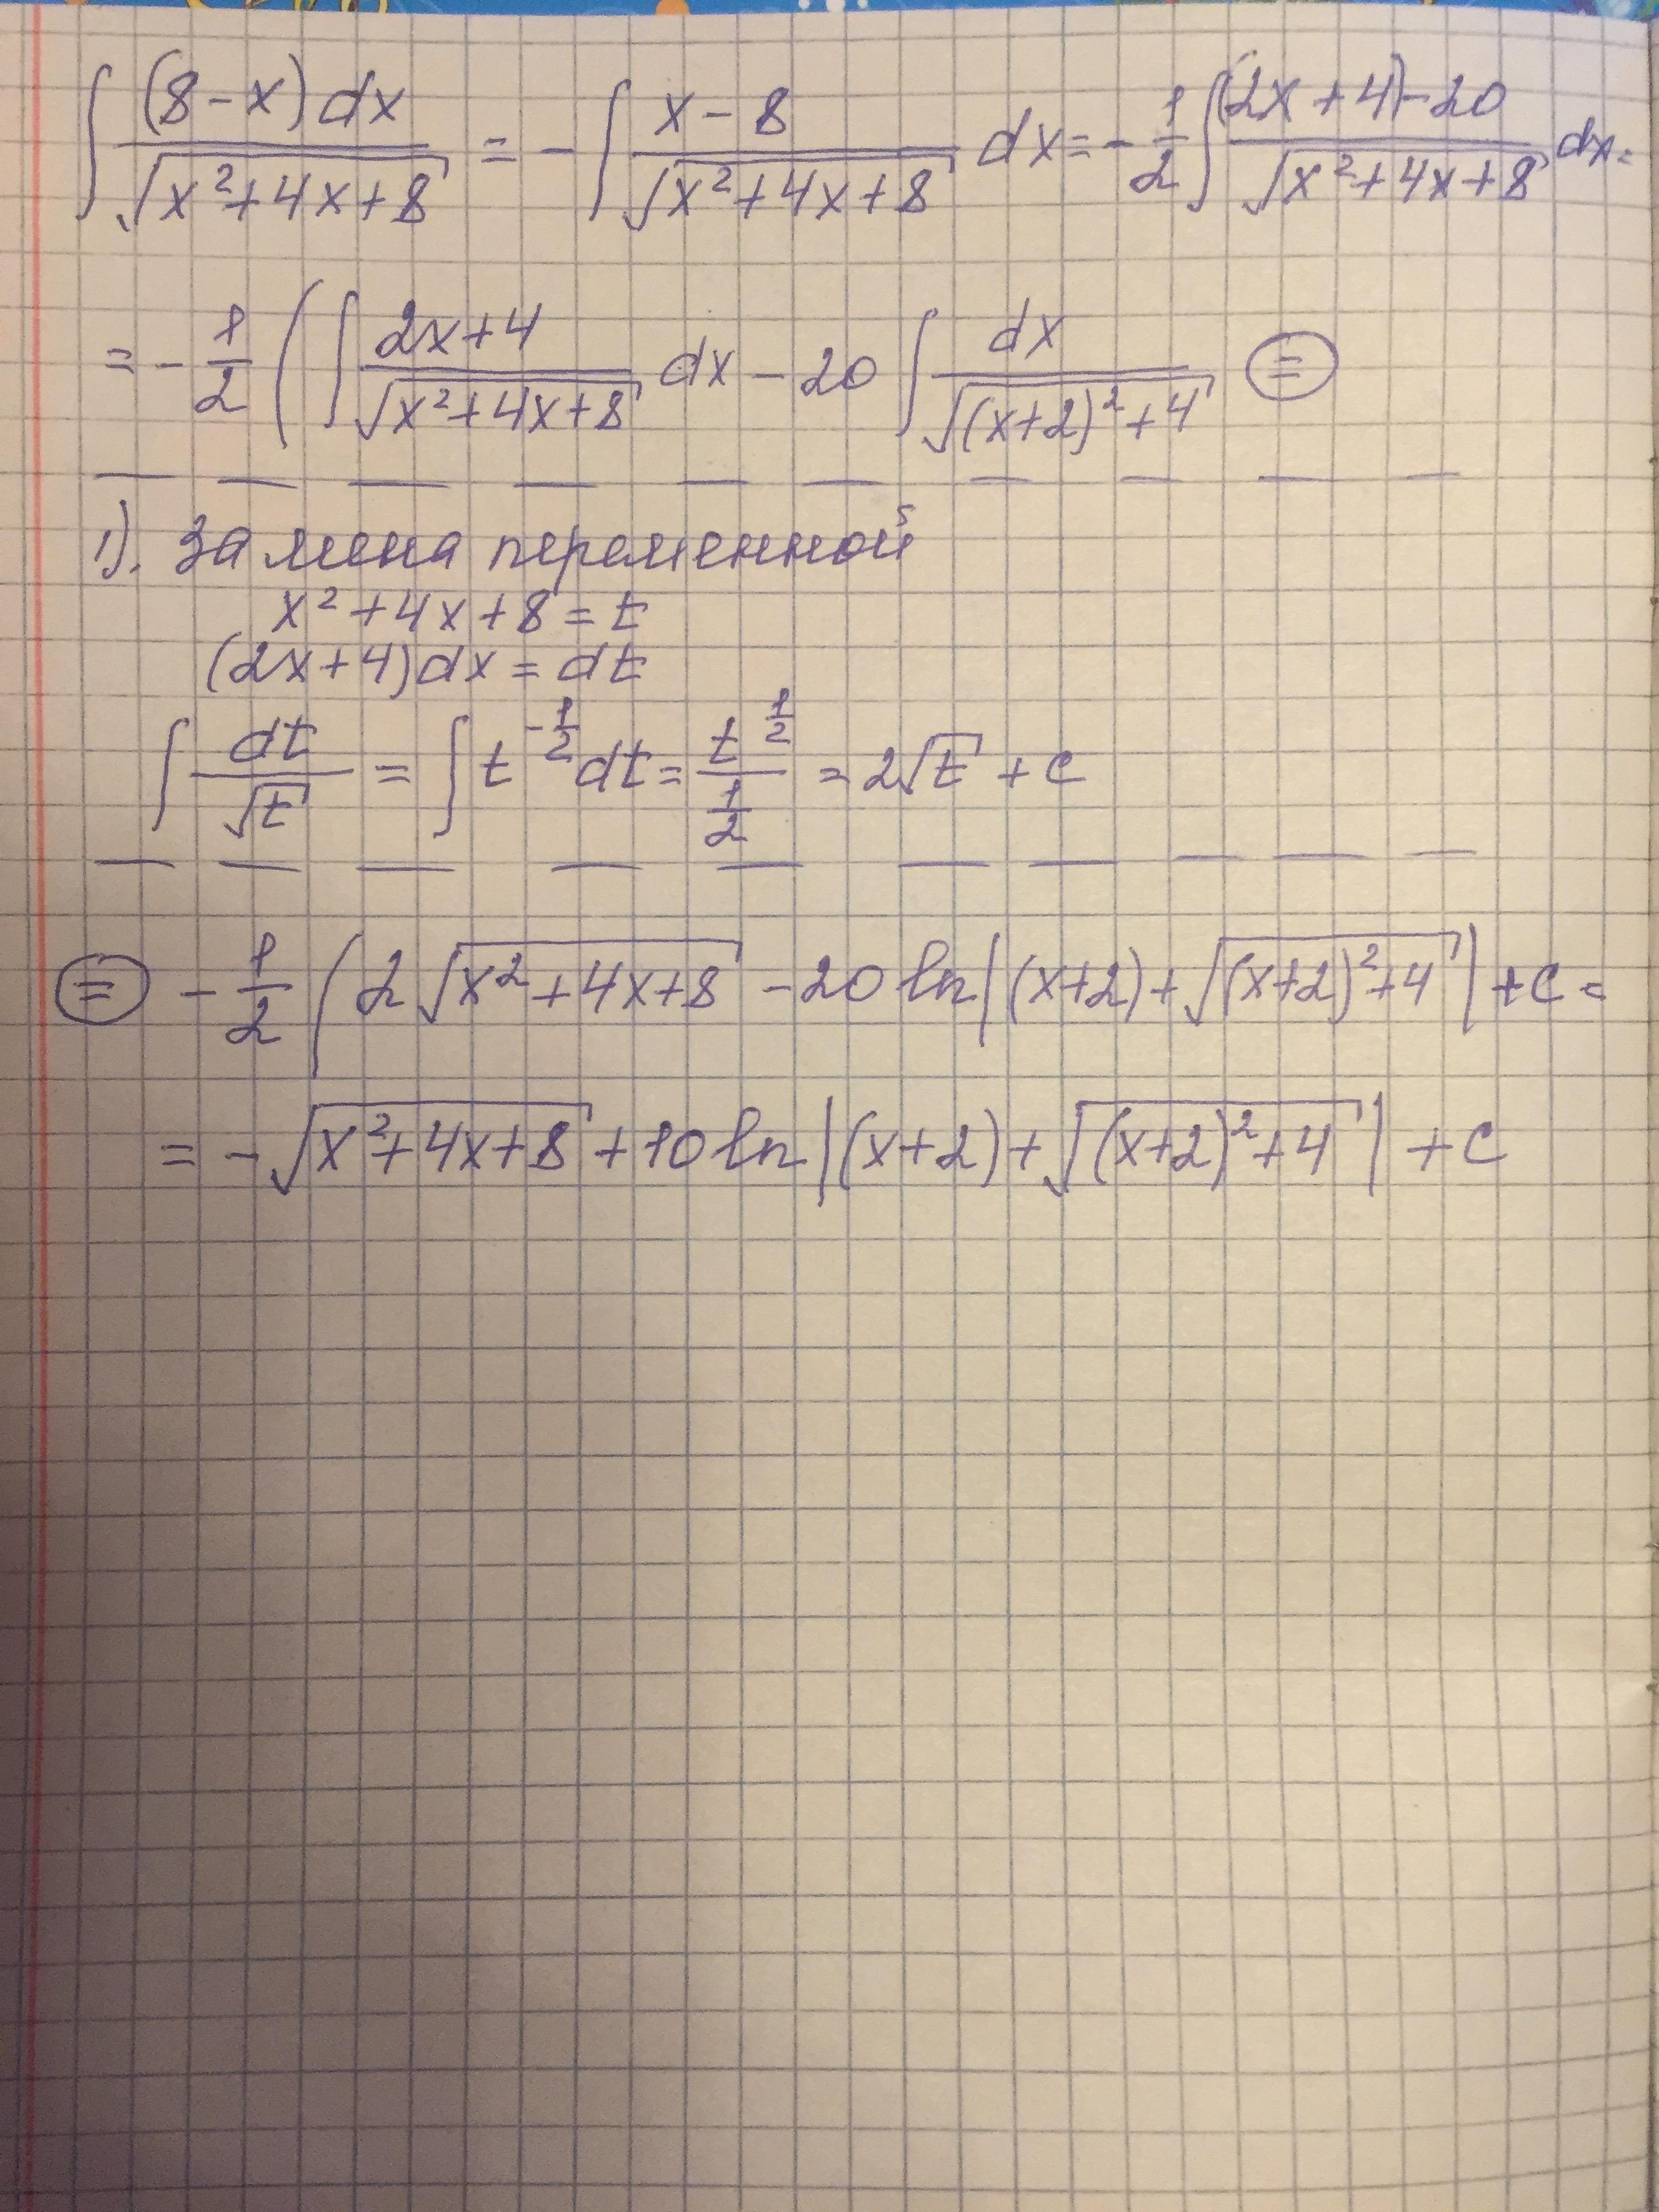 ∫ (8-x)dx / √(x²+4x+8) = - ∫ (x-8) / √(x²+4x+8) dx = - 1/2 ∫ ((2x+4)-20) / √(x²+4x+8) dx =
= - 1/2 ( ∫ (2x+4) / √(x²+4x+8) dx - 20 ∫ dx / √((x+2)²+4) ⊜
1). Замена переменной
x²+4x+8 = t
(2x+4)dx = dt
∫ dt / √t = ∫ t^(-1/2) dt = t^(1/2) / (1/2) = 2√t + c
⊜ - 1/2 ( 2√(x²+4x+8) - 20 ln|(x+2)+√((x+2)²+4)| + c =
= -√(x²+4x+8) + 10 ln|(x+2)+√((x+2)²+4)| + c